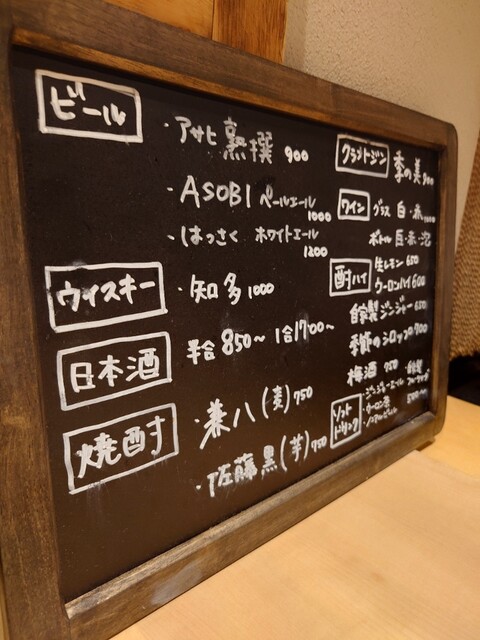 ビール
・アサヒ 熟撰 900
・ASOBI ペールエール 1000
・はっさく ホワイトエール 1200
ウイスキー
・知多 1000
日本酒
半合 850～ 1合1700～
焼酎
・兼八(麦)750
・佐藤 黒(芋)750
クラフトジン
季の美 900
ワイン
グラス 白・赤
ボトル 白・赤・泡
酎ハイ
生レモン 650
ウーロンハイ 600
自家製ジンジャー 650
季節のシロップ 700
梅酒 750
ソフトドリンク
・ジンジャーエール
・ウーロン茶
・ノンアルビール
・自家製
500～